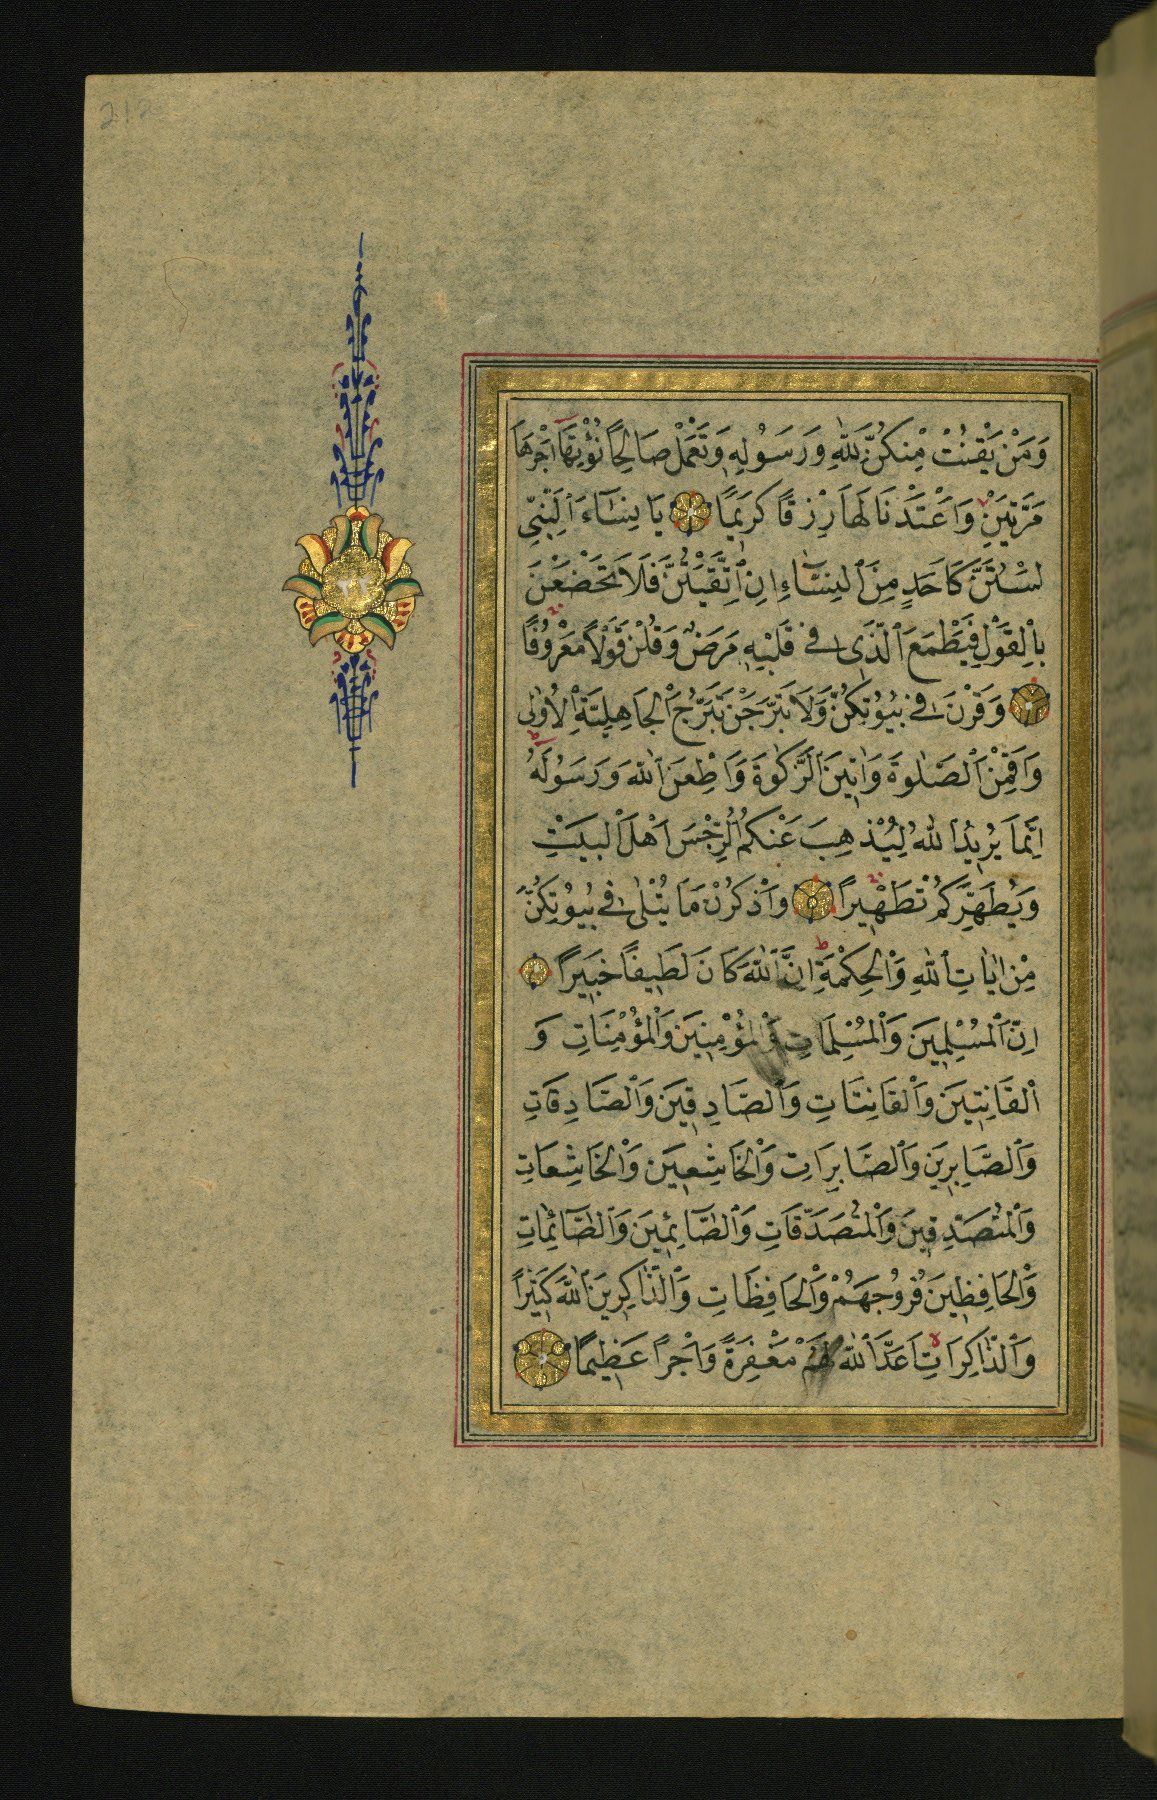 212
وَمَنْ يَقْنُتْ مِنْكُنَّ لِلّٰهِ وَرَسُولِهِ وَتَعْمَلْ صَالِحًا نُؤْتِهَٓا اَجْرَهَا
مَرَّتَيْنِ وَاَعْتَدْنَا لَهَا رِزْقًا كَرِيمًا يَا نِسَٓاءَ النَّبِيِّ
لَسْتُنَّ كَاَحَدٍ مِنَ النِّسَٓاءِ اِنِ اتَّقَيْتُنَّ فَلَا تَخْضَعْنَ
بِالْقَوْلِ فَيَطْمَعَ الَّذِي فِي قَلْبِهِ مَرَضٌ وَقُلْنَ قَوْلًا مَعْرُوفًا
وَقَرْنَ فِي بُيُوتِكُنَّ وَلَا تَبَرَّجْنَ تَبَرُّجَ الْجَاهِلِيَّةِ الْاُولٰى
وَاَقِمْنَ الصَّلٰوةَ وَاٰتِينَ الزَّكٰوةَ وَاَطِعْنَ اللّٰهَ وَرَسُولَهُ
اِنَّمَا يُرِيدُ اللّٰهُ لِيُذْهِبَ عَنْكُمُ الرِّجْسَ اَهْلَ الْبَيْتِ
وَيُطَهِّرَكُمْ تَطْهِيرًا وَاذْكُرْنَ مَا يُتْلٰى فِي بُيُوتِكُنَّ
مِنْ اٰيَاتِ اللّٰهِ وَالْحِكْمَةِ اِنَّ اللّٰهَ كَانَ لَطِيفًا خَبِيرًا
اِنَّ الْمُسْلِمِينَ وَالْمُسْلِمَاتِ وَالْمُؤْمِنِينَ وَالْمُؤْمِنَاتِ وَ
الْقَانِتِينَ وَالْقَانِتَاتِ وَالصَّادِقِينَ وَالصَّادِقَاتِ
وَالصَّابِرِينَ وَالصَّابِرَاتِ وَالْخَاشِعِينَ وَالْخَاشِعَاتِ
وَالْمُتَصَدِّقِينَ وَالْمُتَصَدِّقَاتِ وَالصَّٓائِمِينَ وَالصَّٓائِمَاتِ
وَالْحَافِظِينَ فُرُوجَهُمْ وَالْحَافِظَاتِ وَالذَّاكِرِينَ اللّٰهَ كَثِيرًا
وَالذَّاكِرَاتِ اَعَدَّ اللّٰهُ لَهُمْ مَغْفِرَةً وَاَجْرًا عَظِيمًا